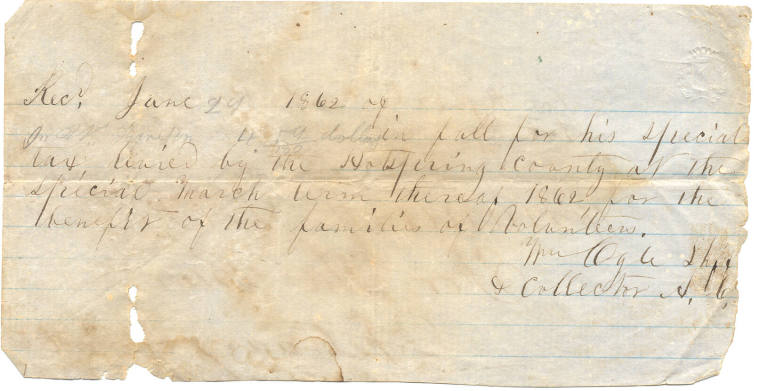 Rec'd. June 29 1862 of
4 59 dollars in full for his special
tax levied by the Hotspring County at the
special March term thereof 1862 for the
benefit of the families of Volunteers.
Wm Ogle Shff
& Collector H. C.